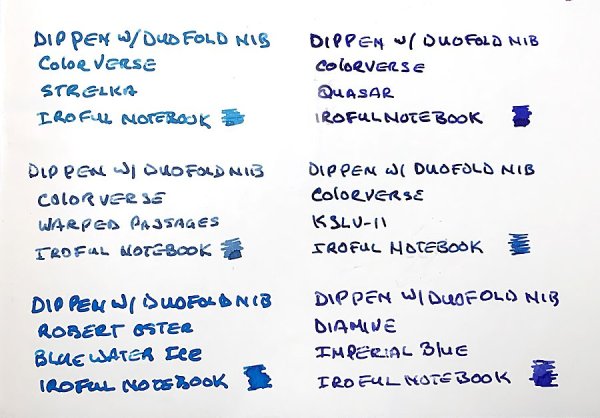 DIP PEN W/ DUOFOLD NIB
COLORVERSE
STRELKA
IROFUL NOTEBOOK
DIP PEN W/ DUOFOLD NIB
COLORVERSE
QUASAR
IROFUL NOTEBOOK
DIP PEN W/ DUOFOLD NIB
COLORVERSE
WARPED PASSAGES
IROFUL NOTEBOOK
DIP PEN W/ DUOFOLD NIB
COLORVERSE
KSLV-II
IROFUL NOTEBOOK
DIP PEN W/ DUOFOLD NIB
ROBERT OSTER
BLUE WATER ICE
IROFUL NOTEBOOK
DIP PEN W/ DUOFOLD NIB
DIAMINE
IMPERIAL BLUE
IROFUL NOTEBOOK